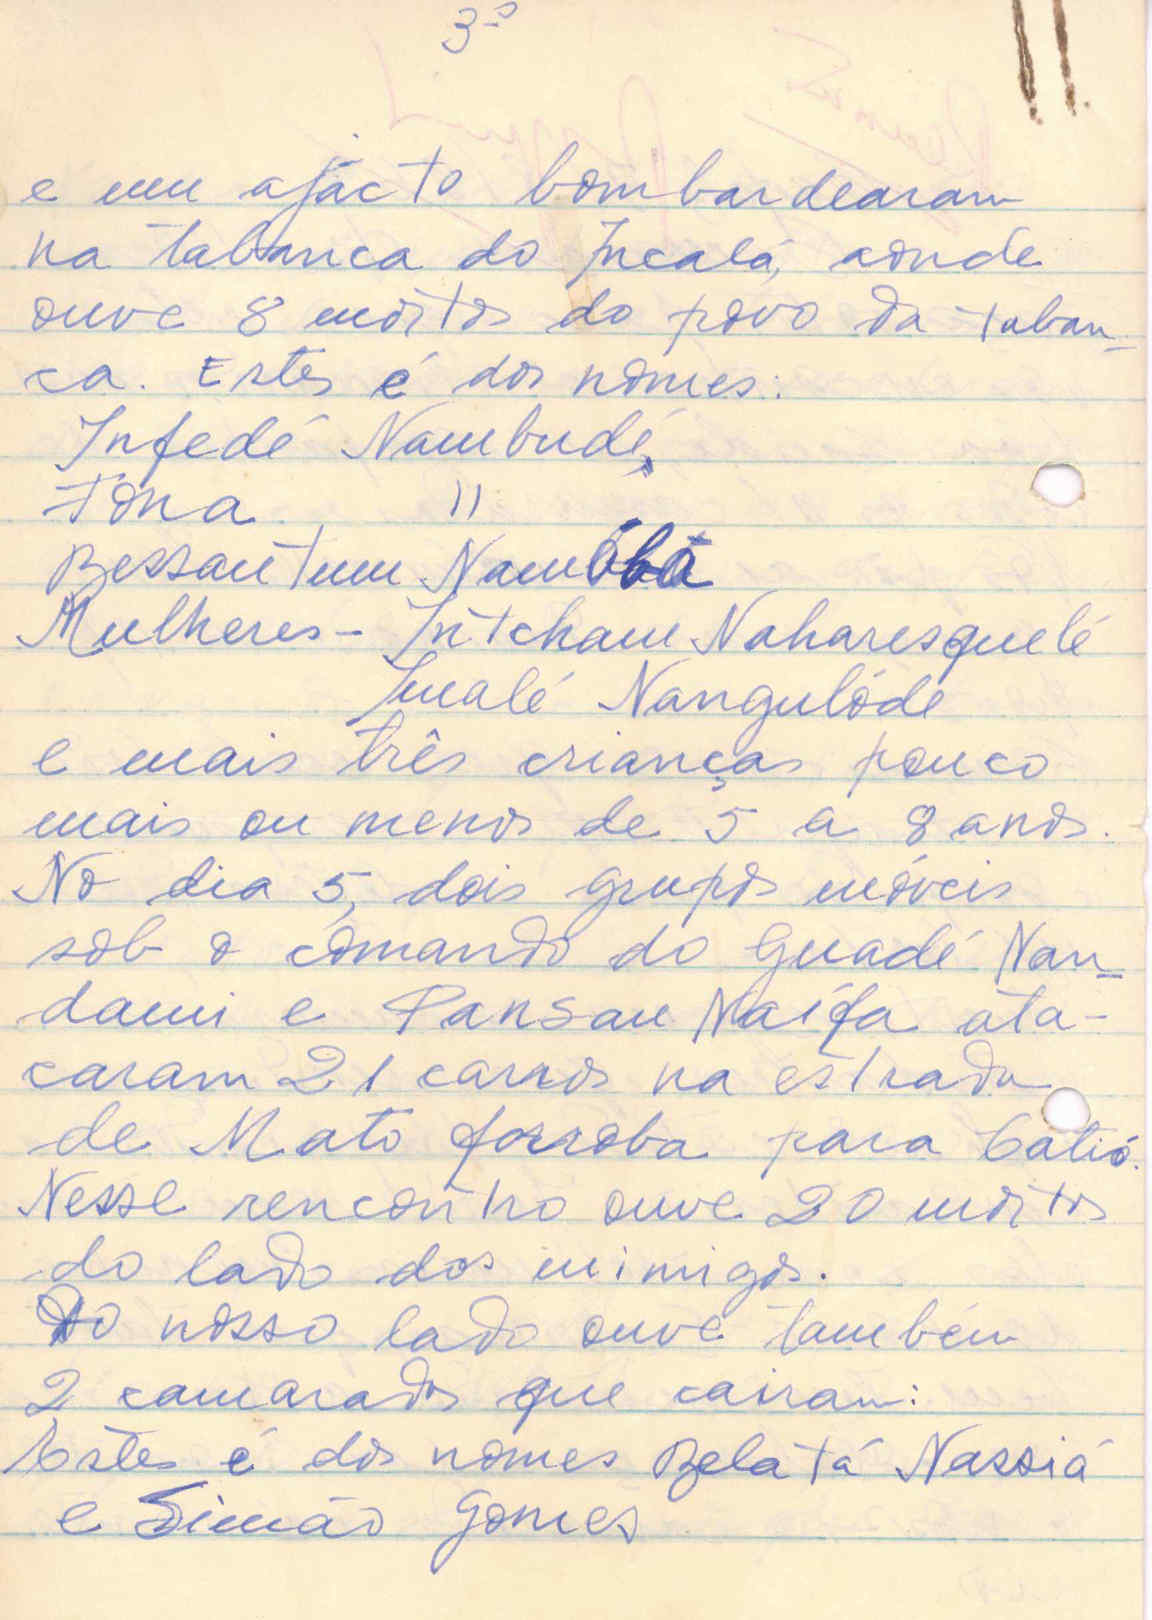 3º
e um ajácto bombardearam
na tabanca do Incalá, aonde
ouve 8 mortos do povo da taban-
ca. Estes é dos nomes:
Infedé Nambudé,
Tona "
Bessantum Namóbá
Mulheres - Intcham Naharesquelé
Inealé Nangulódé
e mais três crianças pouco
mais ou menos de 5 a 8 anos.
No dia 5, dois grupos móveis
sob o comando do Guadé Nan-
dami e Pansau Naífa ata-
caram 21 carros na estrada
de Mato forroba para Catió.
Nesse rencontro ouve 20 mortos
do lado dos inimigos.
Do nosso lado ouve também
2 camarados que cairam:
Estes é dos nomes Belatá Nassiá
e Simão Gomes